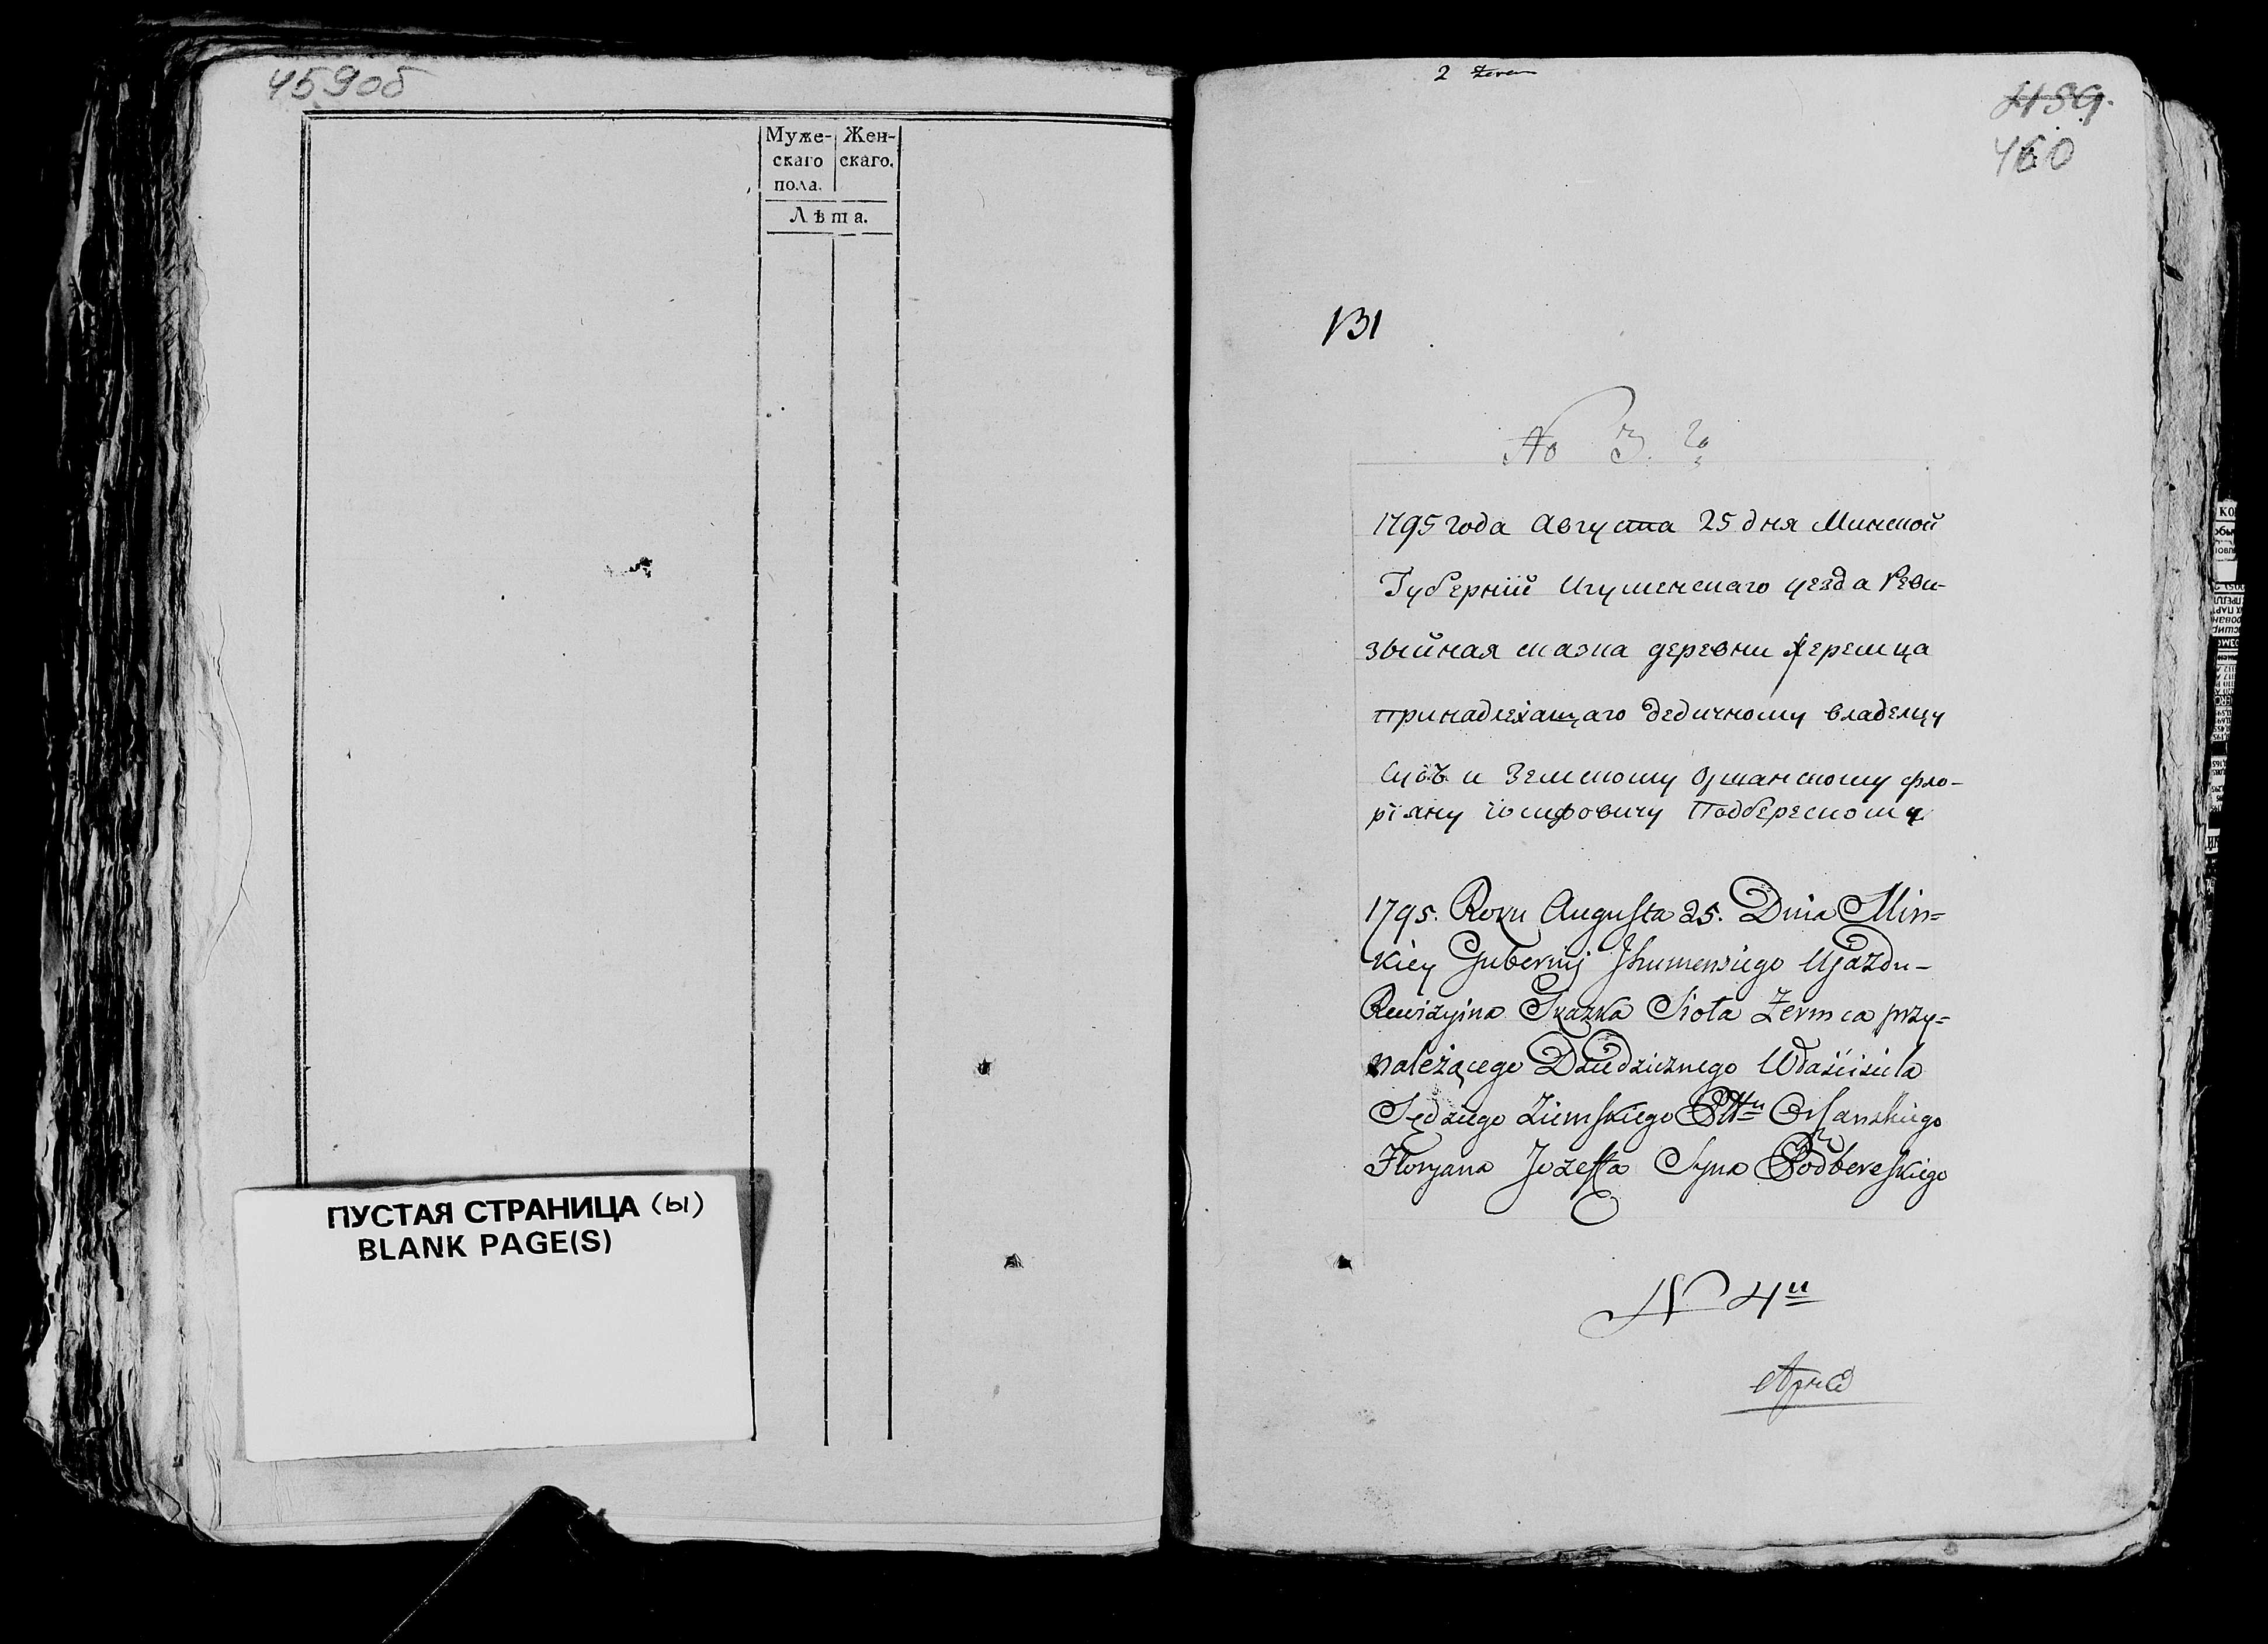 459об
Муже- Жен-
скаго скаго.
пола.
Лѣта.
ПУСТАЯ СТРАНИЦА (ы)
BLANK PAGE(S)
459.
460
131
No 3. го
1795 года августа 25 дня Минской
Губерніи Игуменскаго уезда Реви-
зыйная сказка деревни Жеремца
принадлежащаго дедичному владелцу
Судъи Земскому Оршанскому Фло-
ріяну Іосифовичу Подберескому
1795. Roku Augusta 25. Dnia Min=
skiey Gubernij Jhumenskiego Ujazdu-
Rewizyina Skazka Siola Zeremca przy=
należącego Dziedzicznego Właściciela
Sędziego Ziemskiego Pttu Orszanskiego
Floryana Jozeffa Syna Podbereskiego
N 4